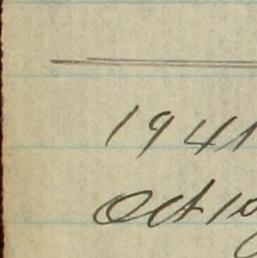 1941
Oct 10